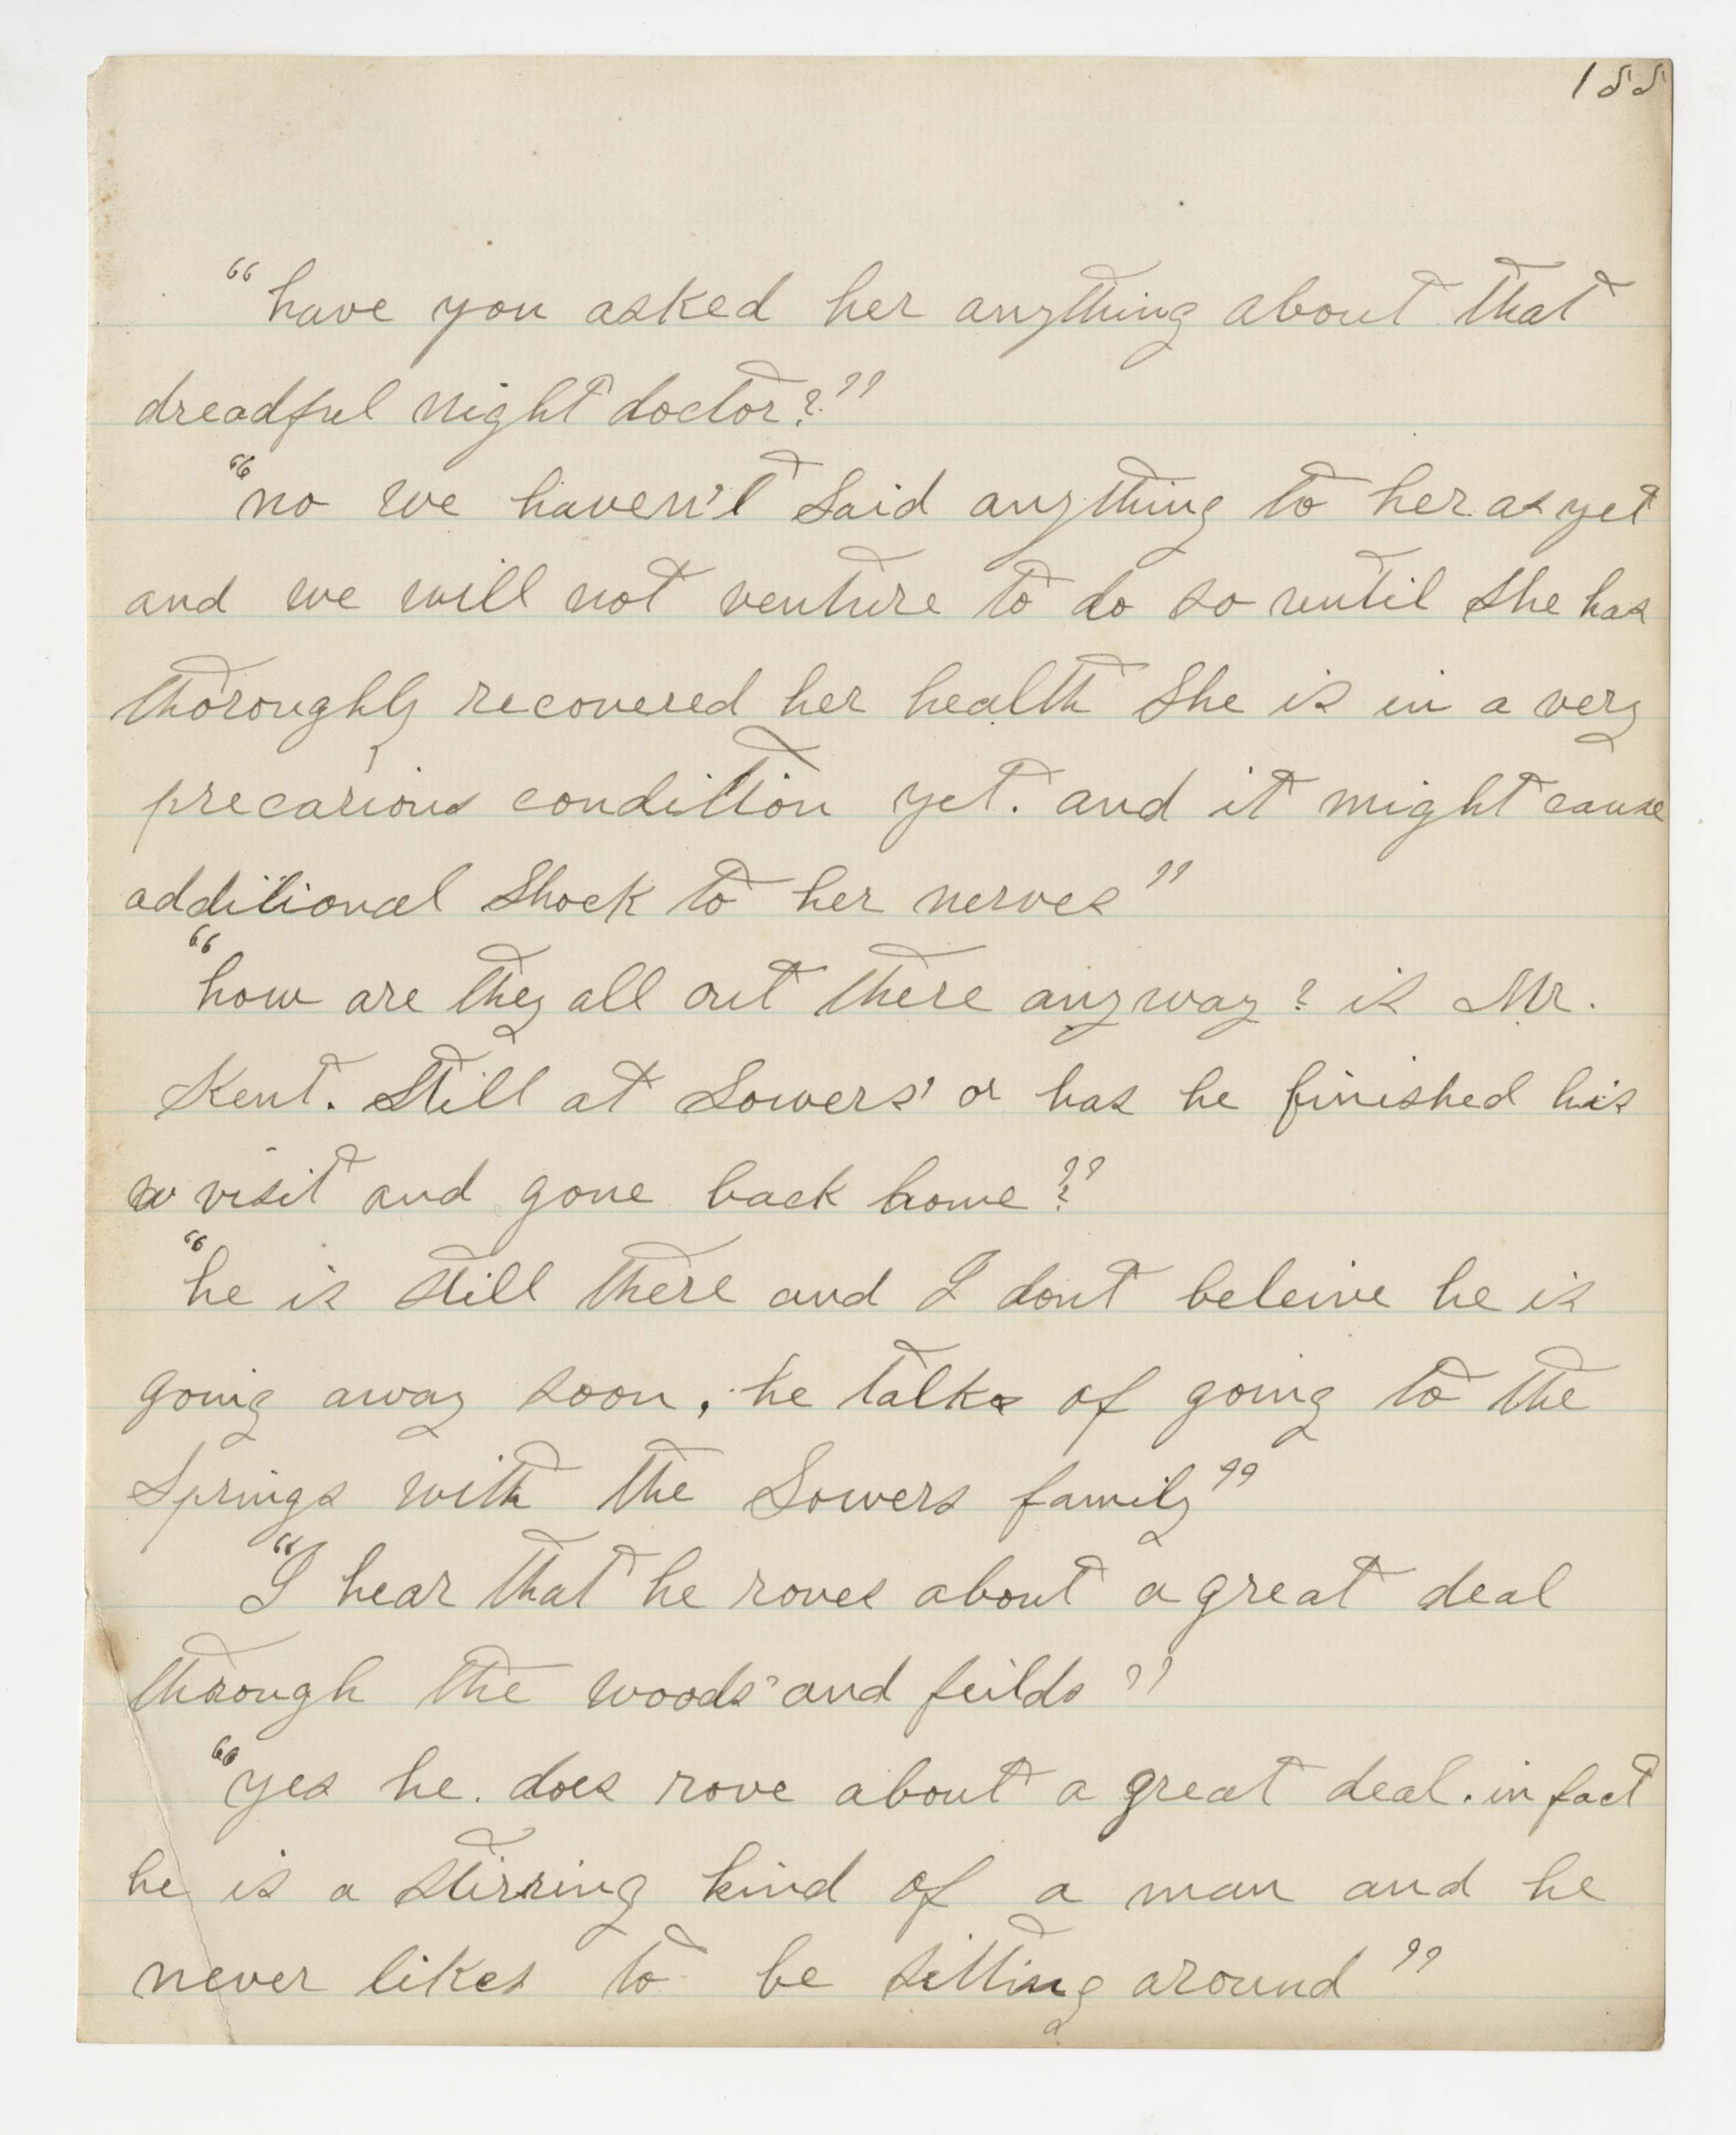 155
“have you asked her anything about that
dreadful night doctor?”
“no we haven't said anything to her as yet
and we will not venture to do so until she has
thoroughly recovered her health she is in a very
precarious condition yet. and it might cause
additional shock to her nerves”
“how are they all out there anyway? is Mr.
Kent. still at Sowers' or has he finished his
visit and gone back home?”
“he is still there and I dont beleive he is
going away soon, he talks of going to the
Springs with the Sowers family”
“I hear that he roves about a great deal
through the woods and feilds”
“yes he. does rove about a great deal. in fact
he is a stirring kind of a man and he
never likes to be sitting around”